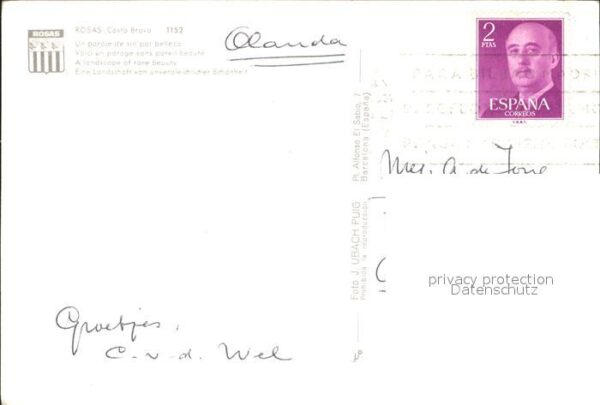 ROSAS
ROSAS (Costa Brava) 1152
Un paraje de sin par belleza
Voici un parage sans pareil beauté
A landscape of rare beauty
Eine Landschaft von unvergleichlicher Schönheit
Olanda
2
PTAS
ESPAÑA
CORREOS
Pl. Alfonso El Sabio, 7
Barcelona (España)
Foto J. UBACH PUIG
Prohibida la reproducción
Mej. A. de
privacy protection
Datenschutz
Groetjes,
C. v. d. Wel